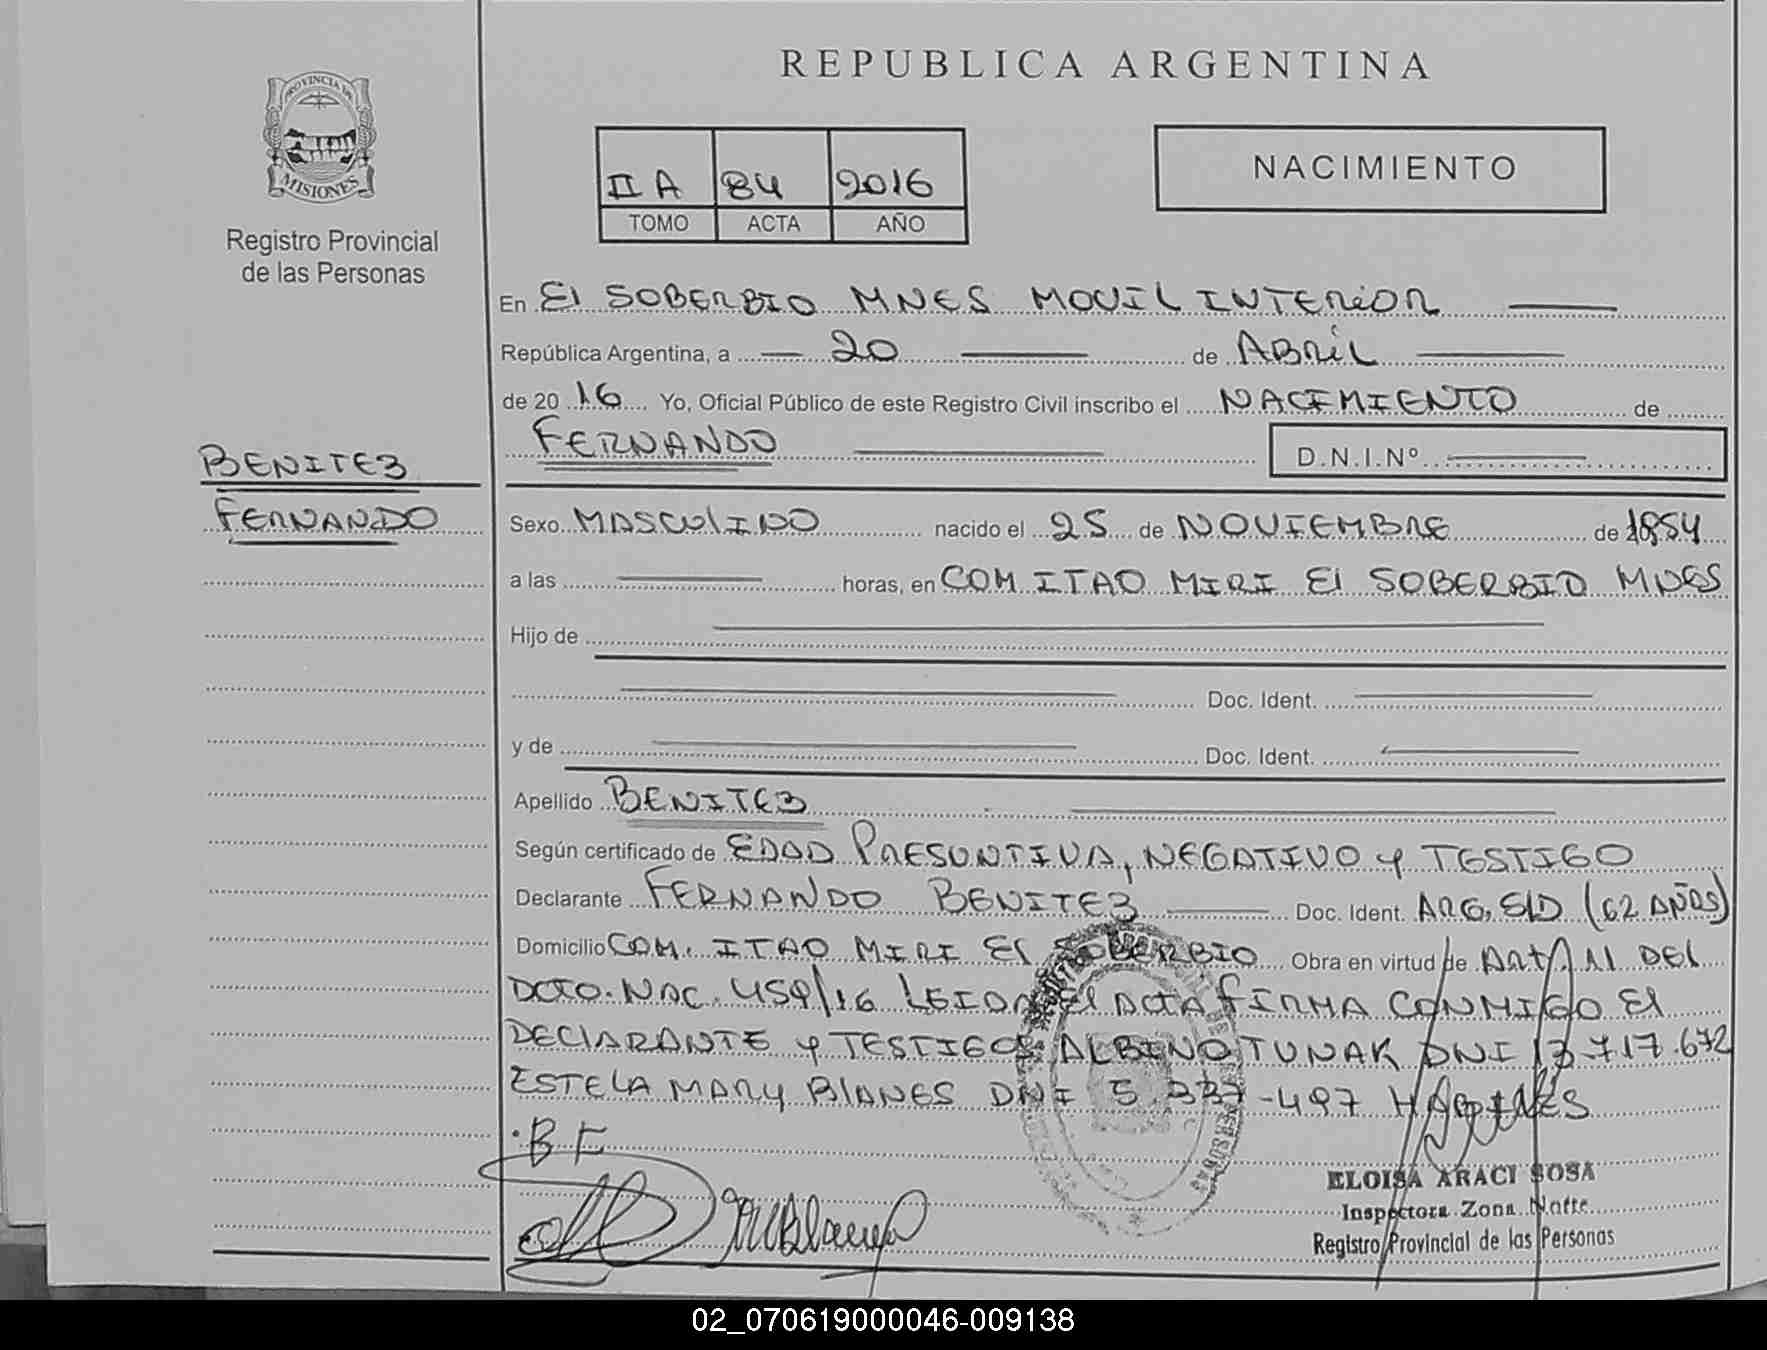 REPUBLICA ARGENTINA
PROVINCIA DE
MISIONES
Registro Provincial
de las Personas
II A 84 2016
TOMO ACTA AÑO
NACIMIENTO
En El SOBERBIO MNES MOVIL INTERiOR
República Argentina, a 20 de ABRiL
de 20 16 Yo, Oficial Público de este Registro Civil inscribo el NACIMIENTO de
FERNANDO D.N.I.Nº
BENITEZ
FERNANDO
Sexo MASCULINO nacido el 25 de NOVIEMBRE de 1954
a las horas, en COM. ITAO MIRI El SOBERBIO MNES
Hijo de
Doc. Ident.
y de Doc. Ident.
Apellido BENITEZ
Según certificado de EDAD PRESUNTIVA, NEGATIVO y TESTIGO
Declarante FERNANDO BENITEZ Doc. Ident. ARG. S/D (62 AÑOS)
Domicilio COM. ITAO MIRI El SOBERBIO Obra en virtud de ART. 11 DEl
DCTO. NAC. 459/16 LEIDA El ACTA FIRMA CONMIGO El
DEClARANTE y TESTIGOS ALBINO TUNAK DNI 13.717.672
ESTELA MARY BlANES DNI 5.337-497 HABILES
B F
MBlanes
ELOISA ARACI SOSA
Inspectora Zona Norte
Registro Provincial de las Personas
02_070619000046-009138